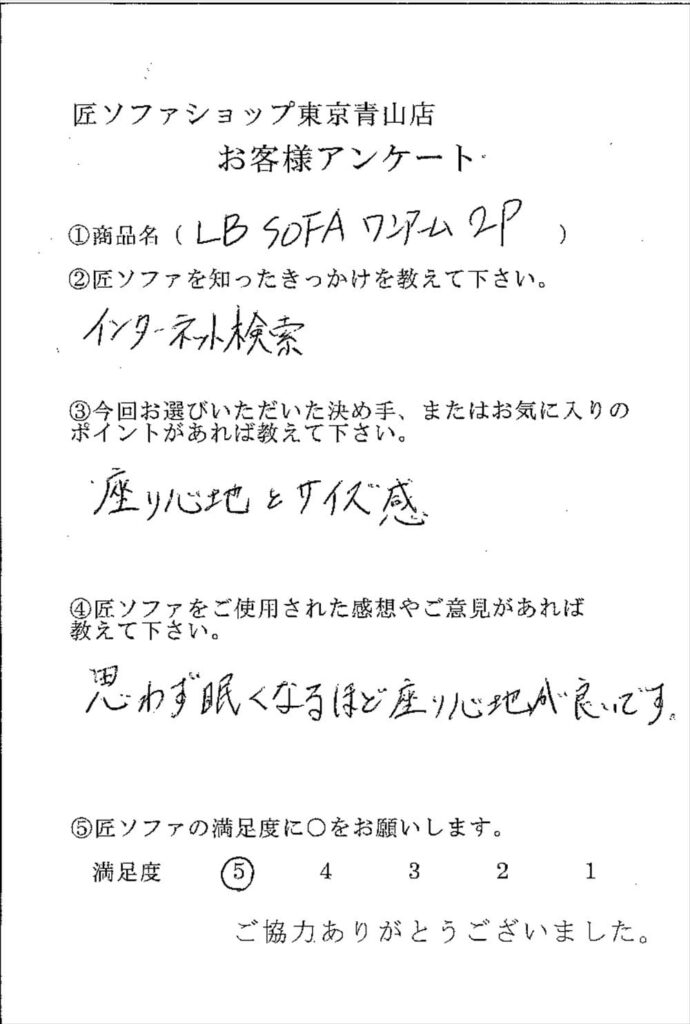 匠ソファショップ東京青山店
お客様アンケート
①商品名（ LB SOFA ワンアーム 2P ）
②匠ソファを知ったきっかけを教えて下さい。
インターネット検索
③今回お選びいただいた決め手、またはお気に入りの
ポイントがあれば教えて下さい。
座り心地とサイズ感
④匠ソファをご使用された感想やご意見があれば
教えて下さい。
思わず眠くなるほど座り心地が良いです。
⑤匠ソファの満足度に○をお願いします。
満足度 ⑤ 4 3 2 1
ご協力ありがとうございました。